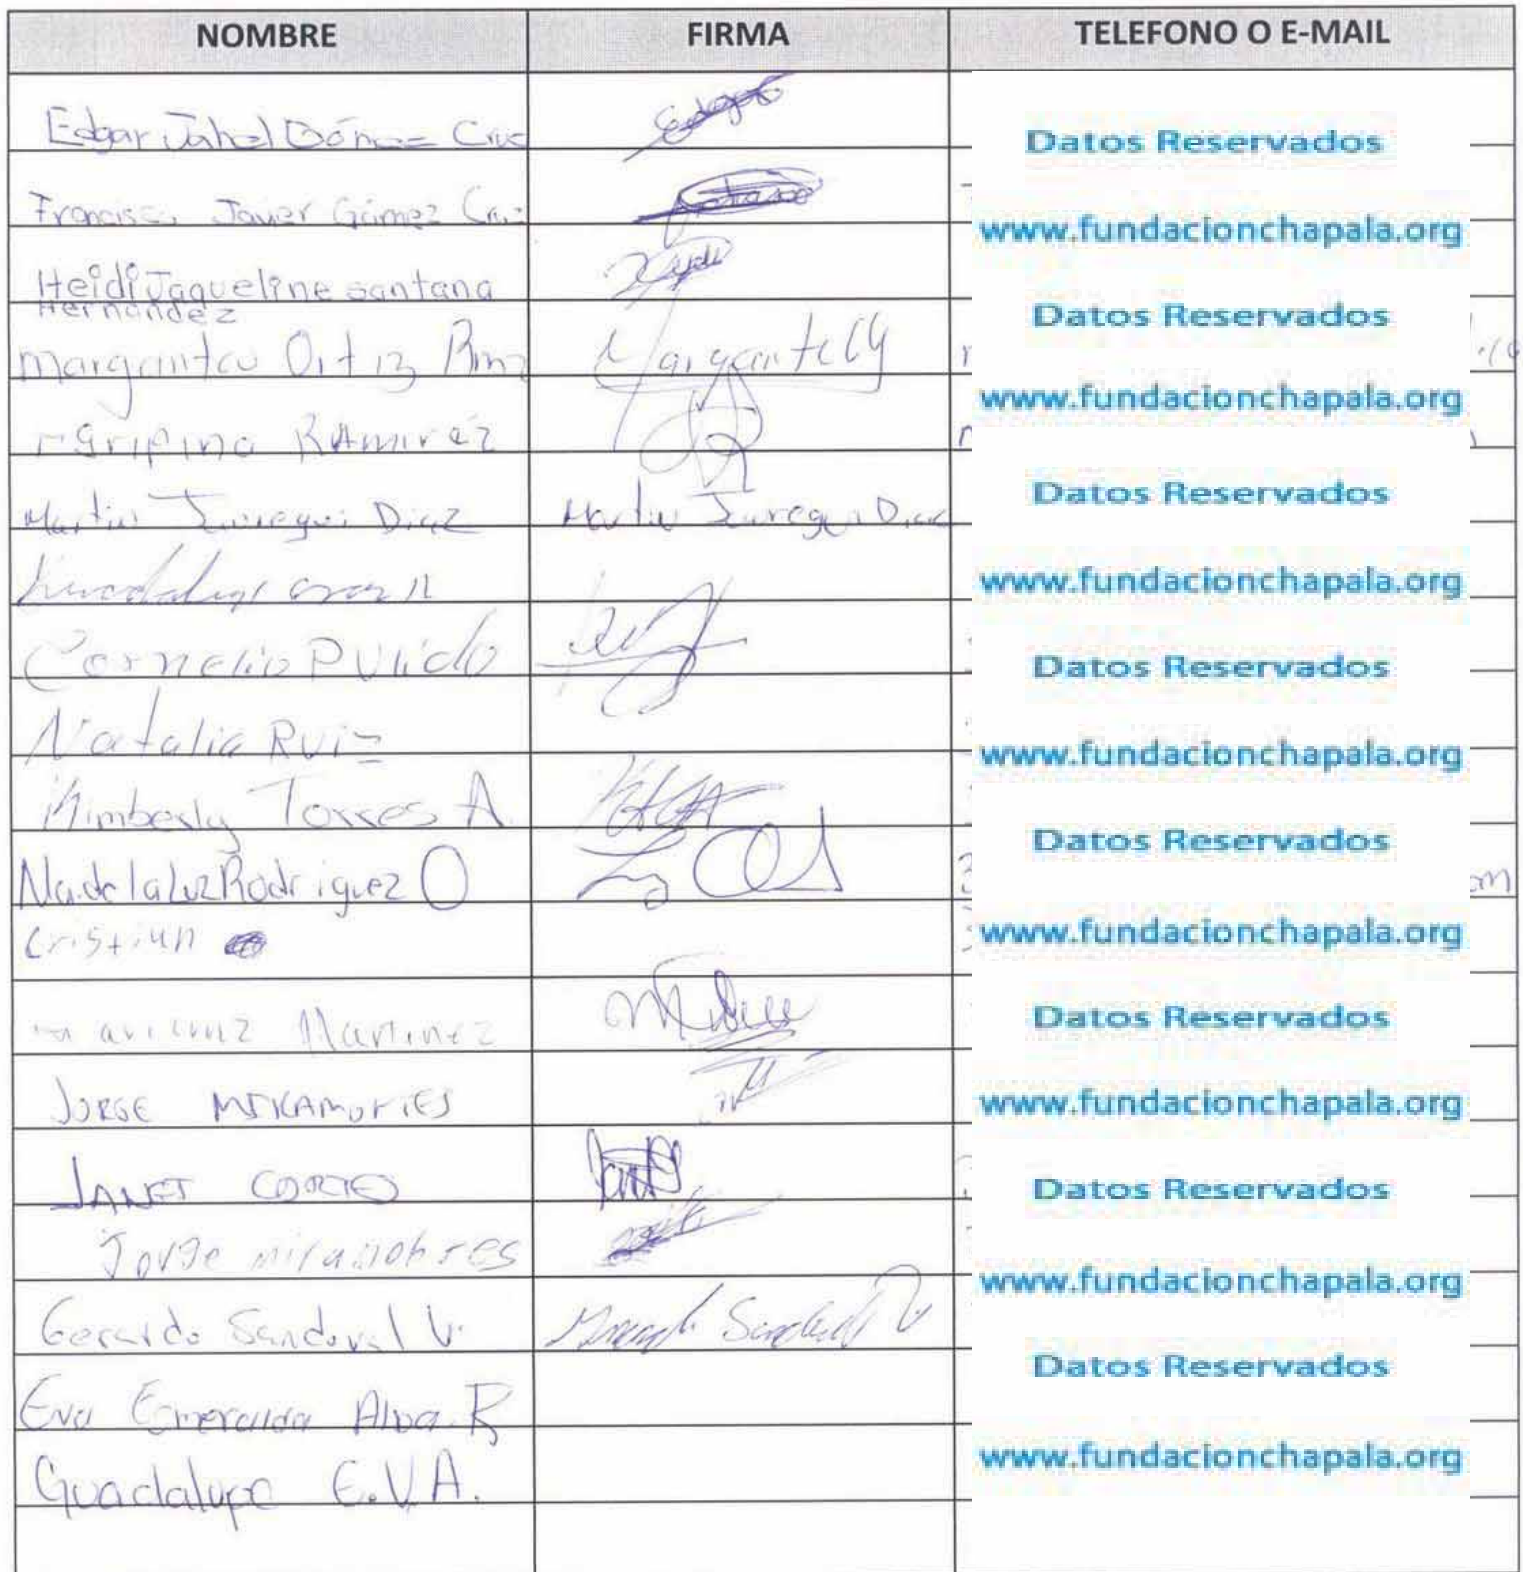 NOMBRE FIRMA TELEFONO O E-MAIL
Edgar Jahel Gómez Cruz
Datos Reservados
Francisco Javier Gómez Cruz
www.fundacionchapala.org
Heidi Jaqueline santana
Hernandez
Datos Reservados
Margarita Ortiz Margarita
www.fundacionchapala.org
Ramirez
Datos Reservados
Martin Jauregui Diaz Martin Jauregui Diaz
www.fundacionchapala.org
Guadalupe
Cornelio Pulido
Datos Reservados
Natalia Ruiz
www.fundacionchapala.org
Kimberly Torres A.
Datos Reservados
Ma. de la Luz Rodriguez O
Cristian
www.fundacionchapala.org
Maricruz Martinez
Datos Reservados
JORGE
www.fundacionchapala.org
JANET CORTES
Datos Reservados
Jorge miramontes
www.fundacionchapala.org
Gerardo Sandoval V. Gerardo Sandoval V
Datos Reservados
Eva Esmeralda Alva R
www.fundacionchapala.org
Guadalupe E.V.A.